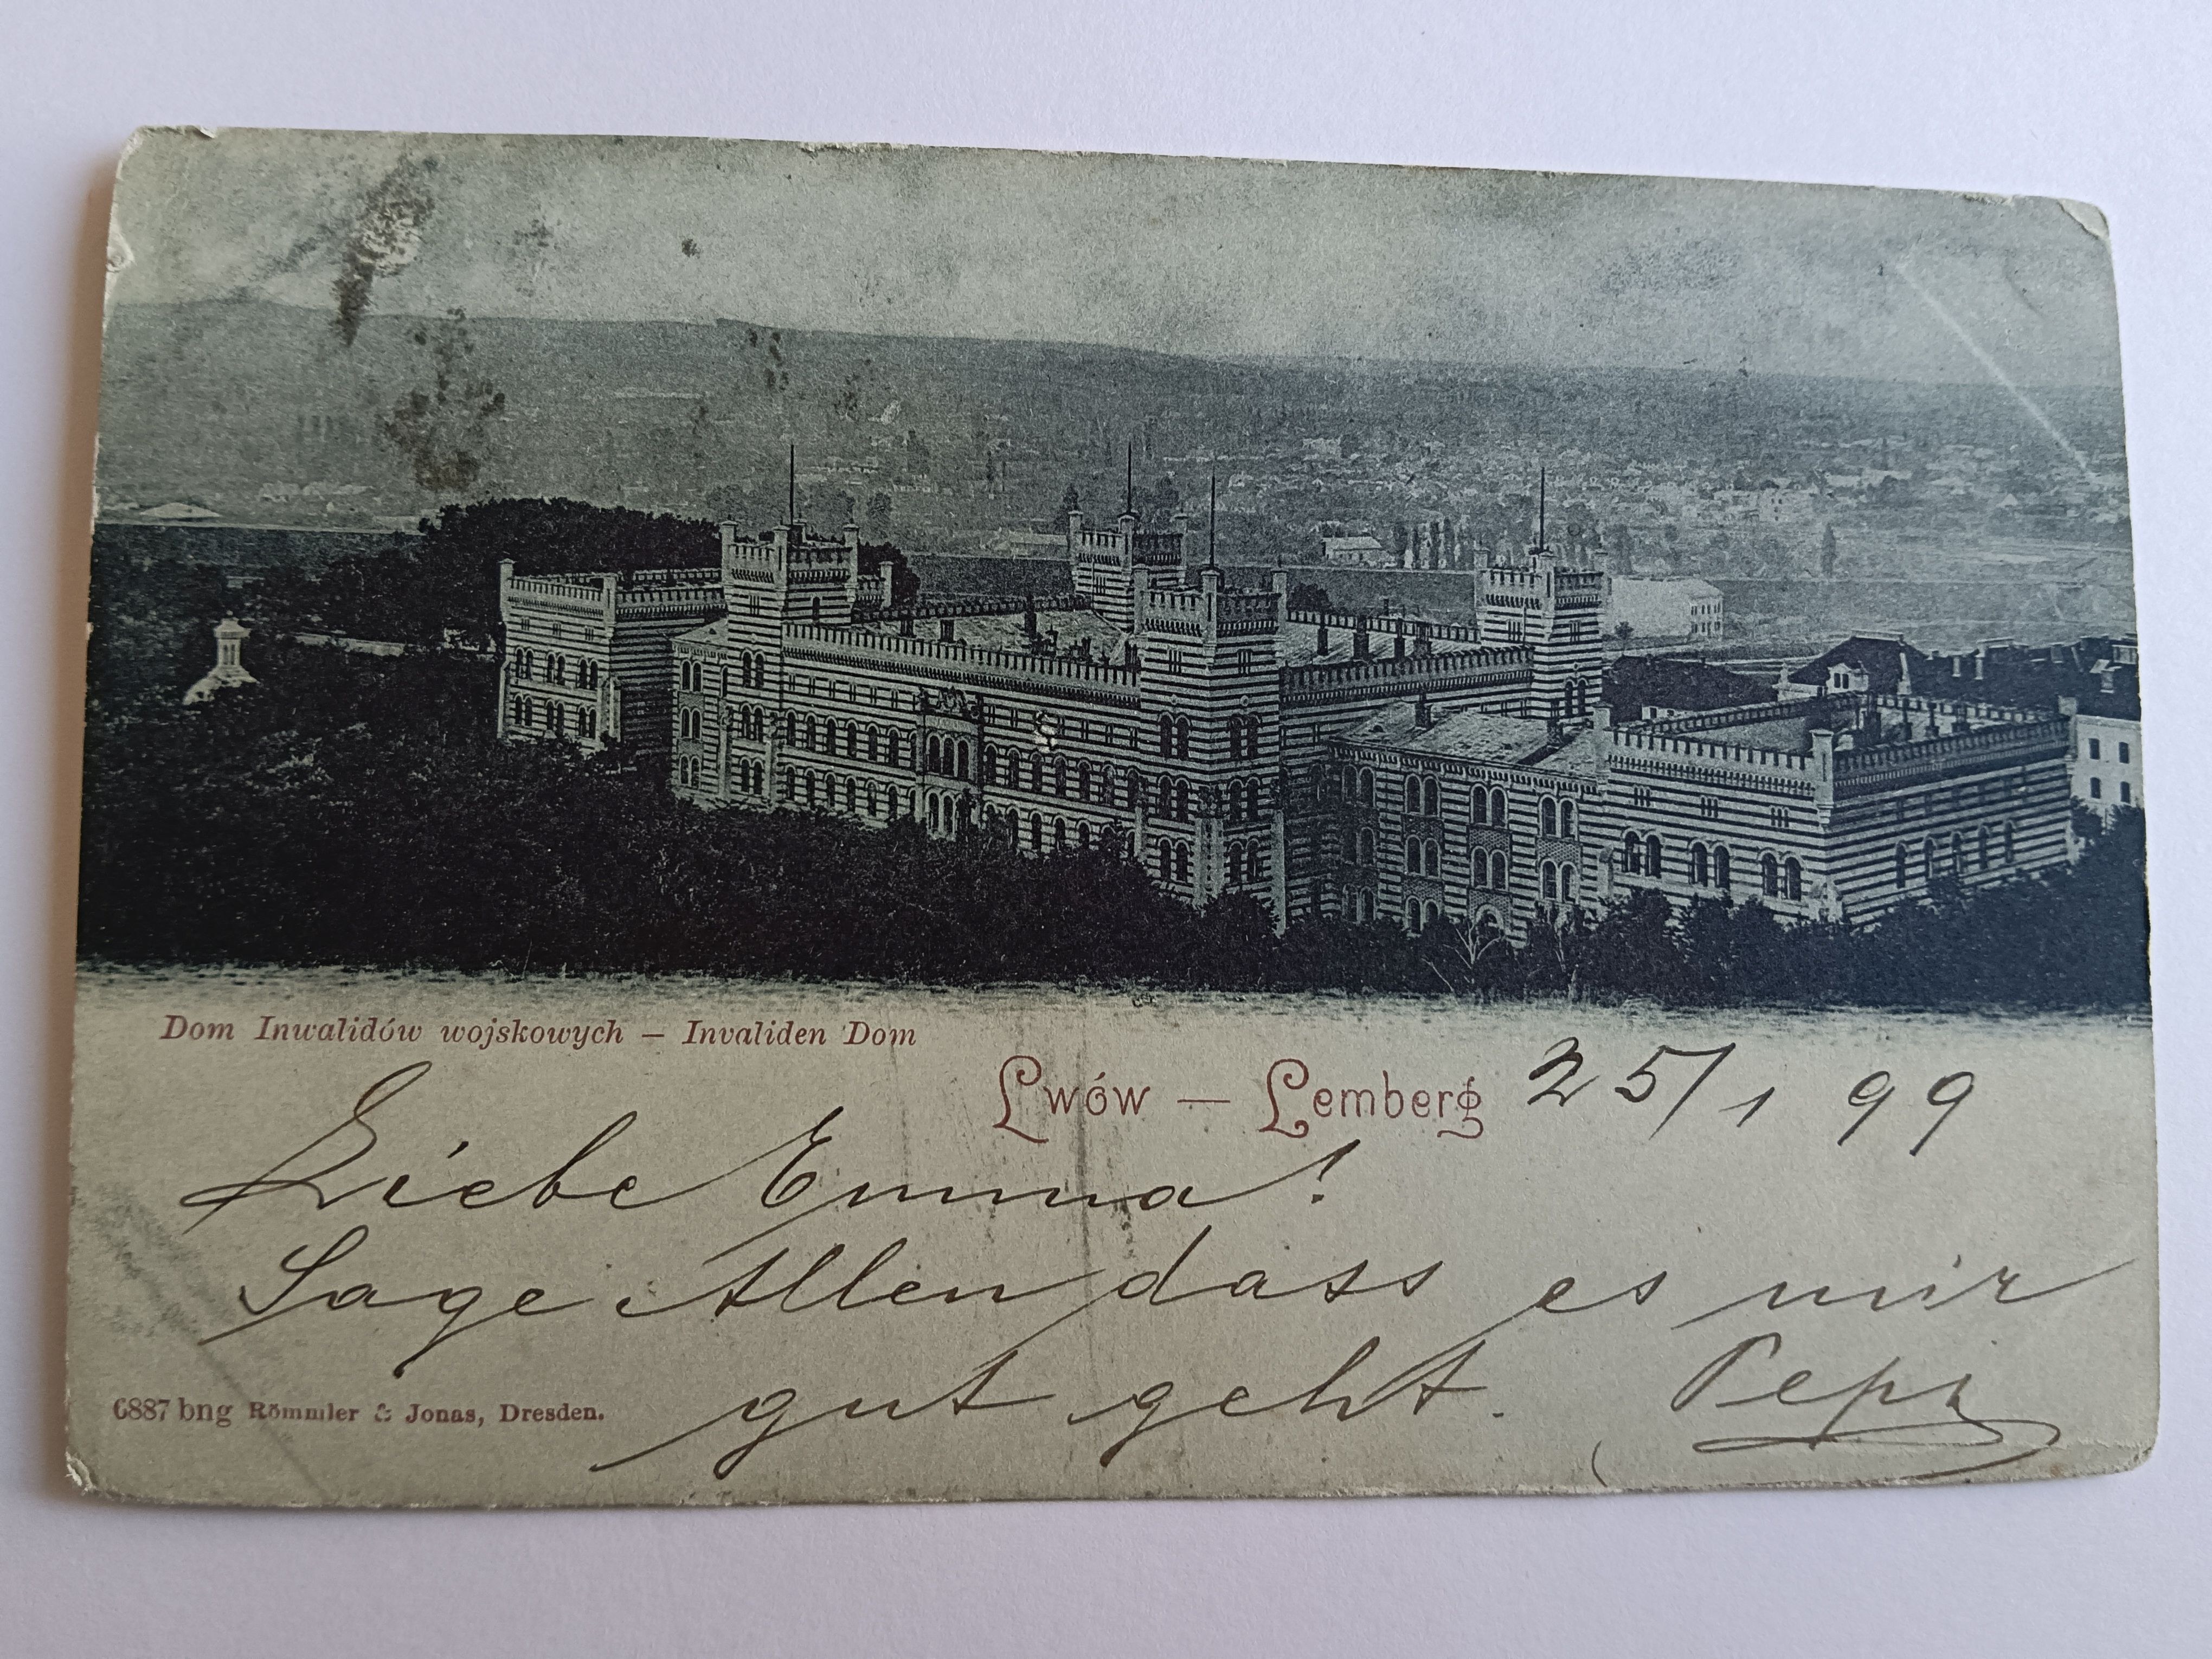 Dom Inwalidów wojskowych — Invaliden Dom
Lwów — Lemberg 25/1 99
Liebe Emma!
Sage Allen dass es mir
gut geht. Pepi
6887 bng Römmler & Jonas, Dresden.